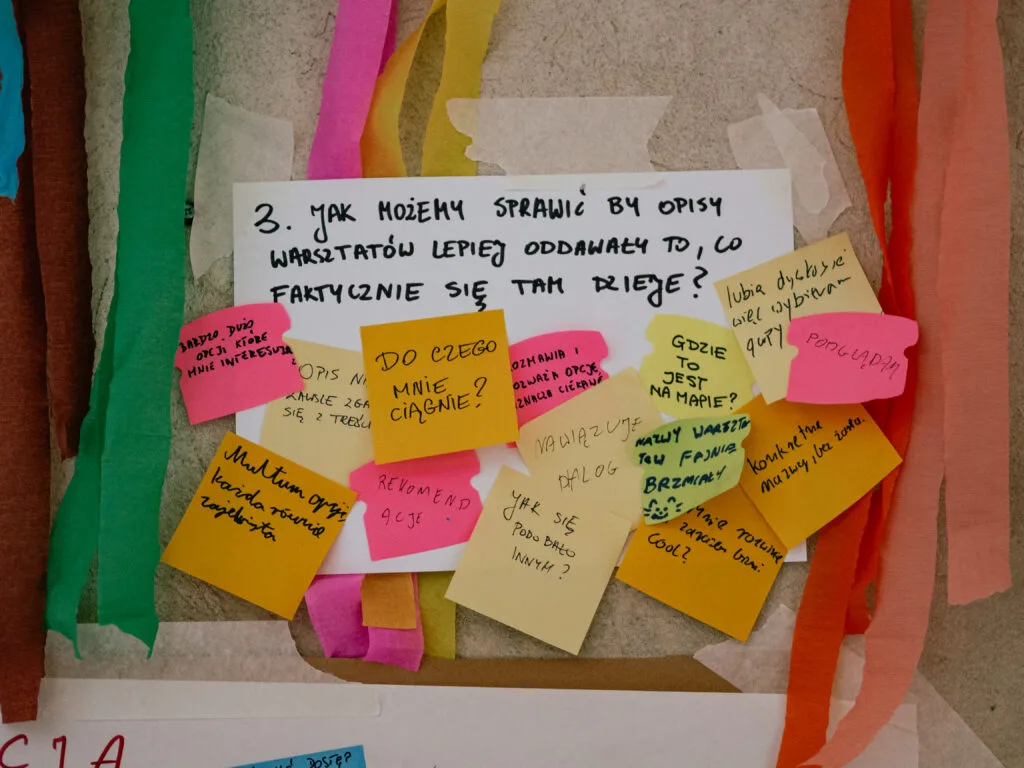 3. JAK MOŻEMY SPRAWIĆ BY OPISY
WARSZTATÓW LEPIEJ ODDAWAŁY TO, CO
FAKTYCZNIE SIĘ TAM DZIEJE?
BARDZO DUŻO
OPCJI KTÓRE
MNIE INTERESUJĄ
OPIS
ZAWSZE
SIĘ Z TREŚCI
DO CZEGO
MNIE
CIĄGNIE?
ROZMAWIA I
ROZWAŻA OPCJE
GDZIE
TO
JEST
NA MAPIE?
lubię dyskusje
więc wybieram
PODGLĄDZM
Multum opcji
każda równie
REKOMEND
ACJE
NAWIĄZUJE
DIALOG
NAZWY WARSZTA
TÓW FAJNIE
BRZMIAŁY
konkretne
nazwy, bez
JAK SIĘ
PODOBAŁO
INNYM?
COOL?
CJA
DOSTĘP